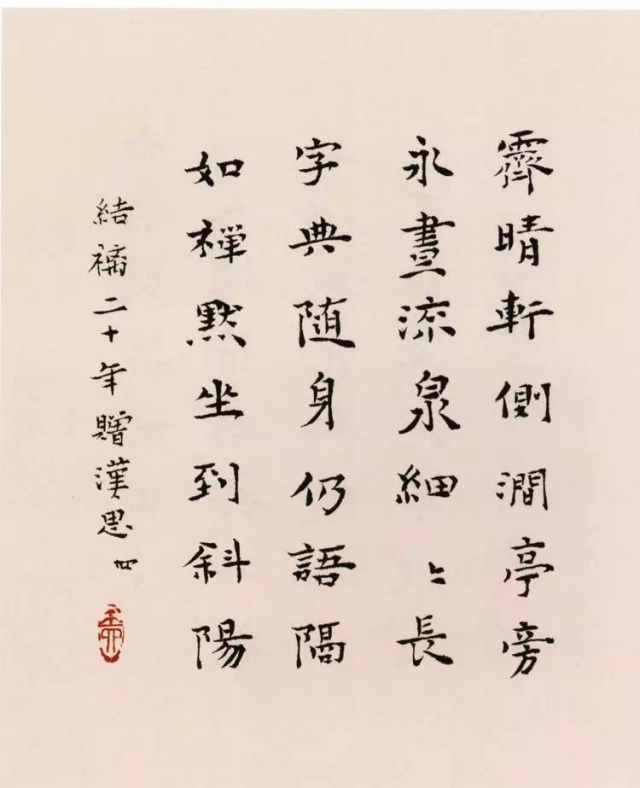 霽晴軒側澗亭旁
永晝流泉細〻長
字典随身仍語隔
如禪默坐到斜陽
結褵二十年贈漢思